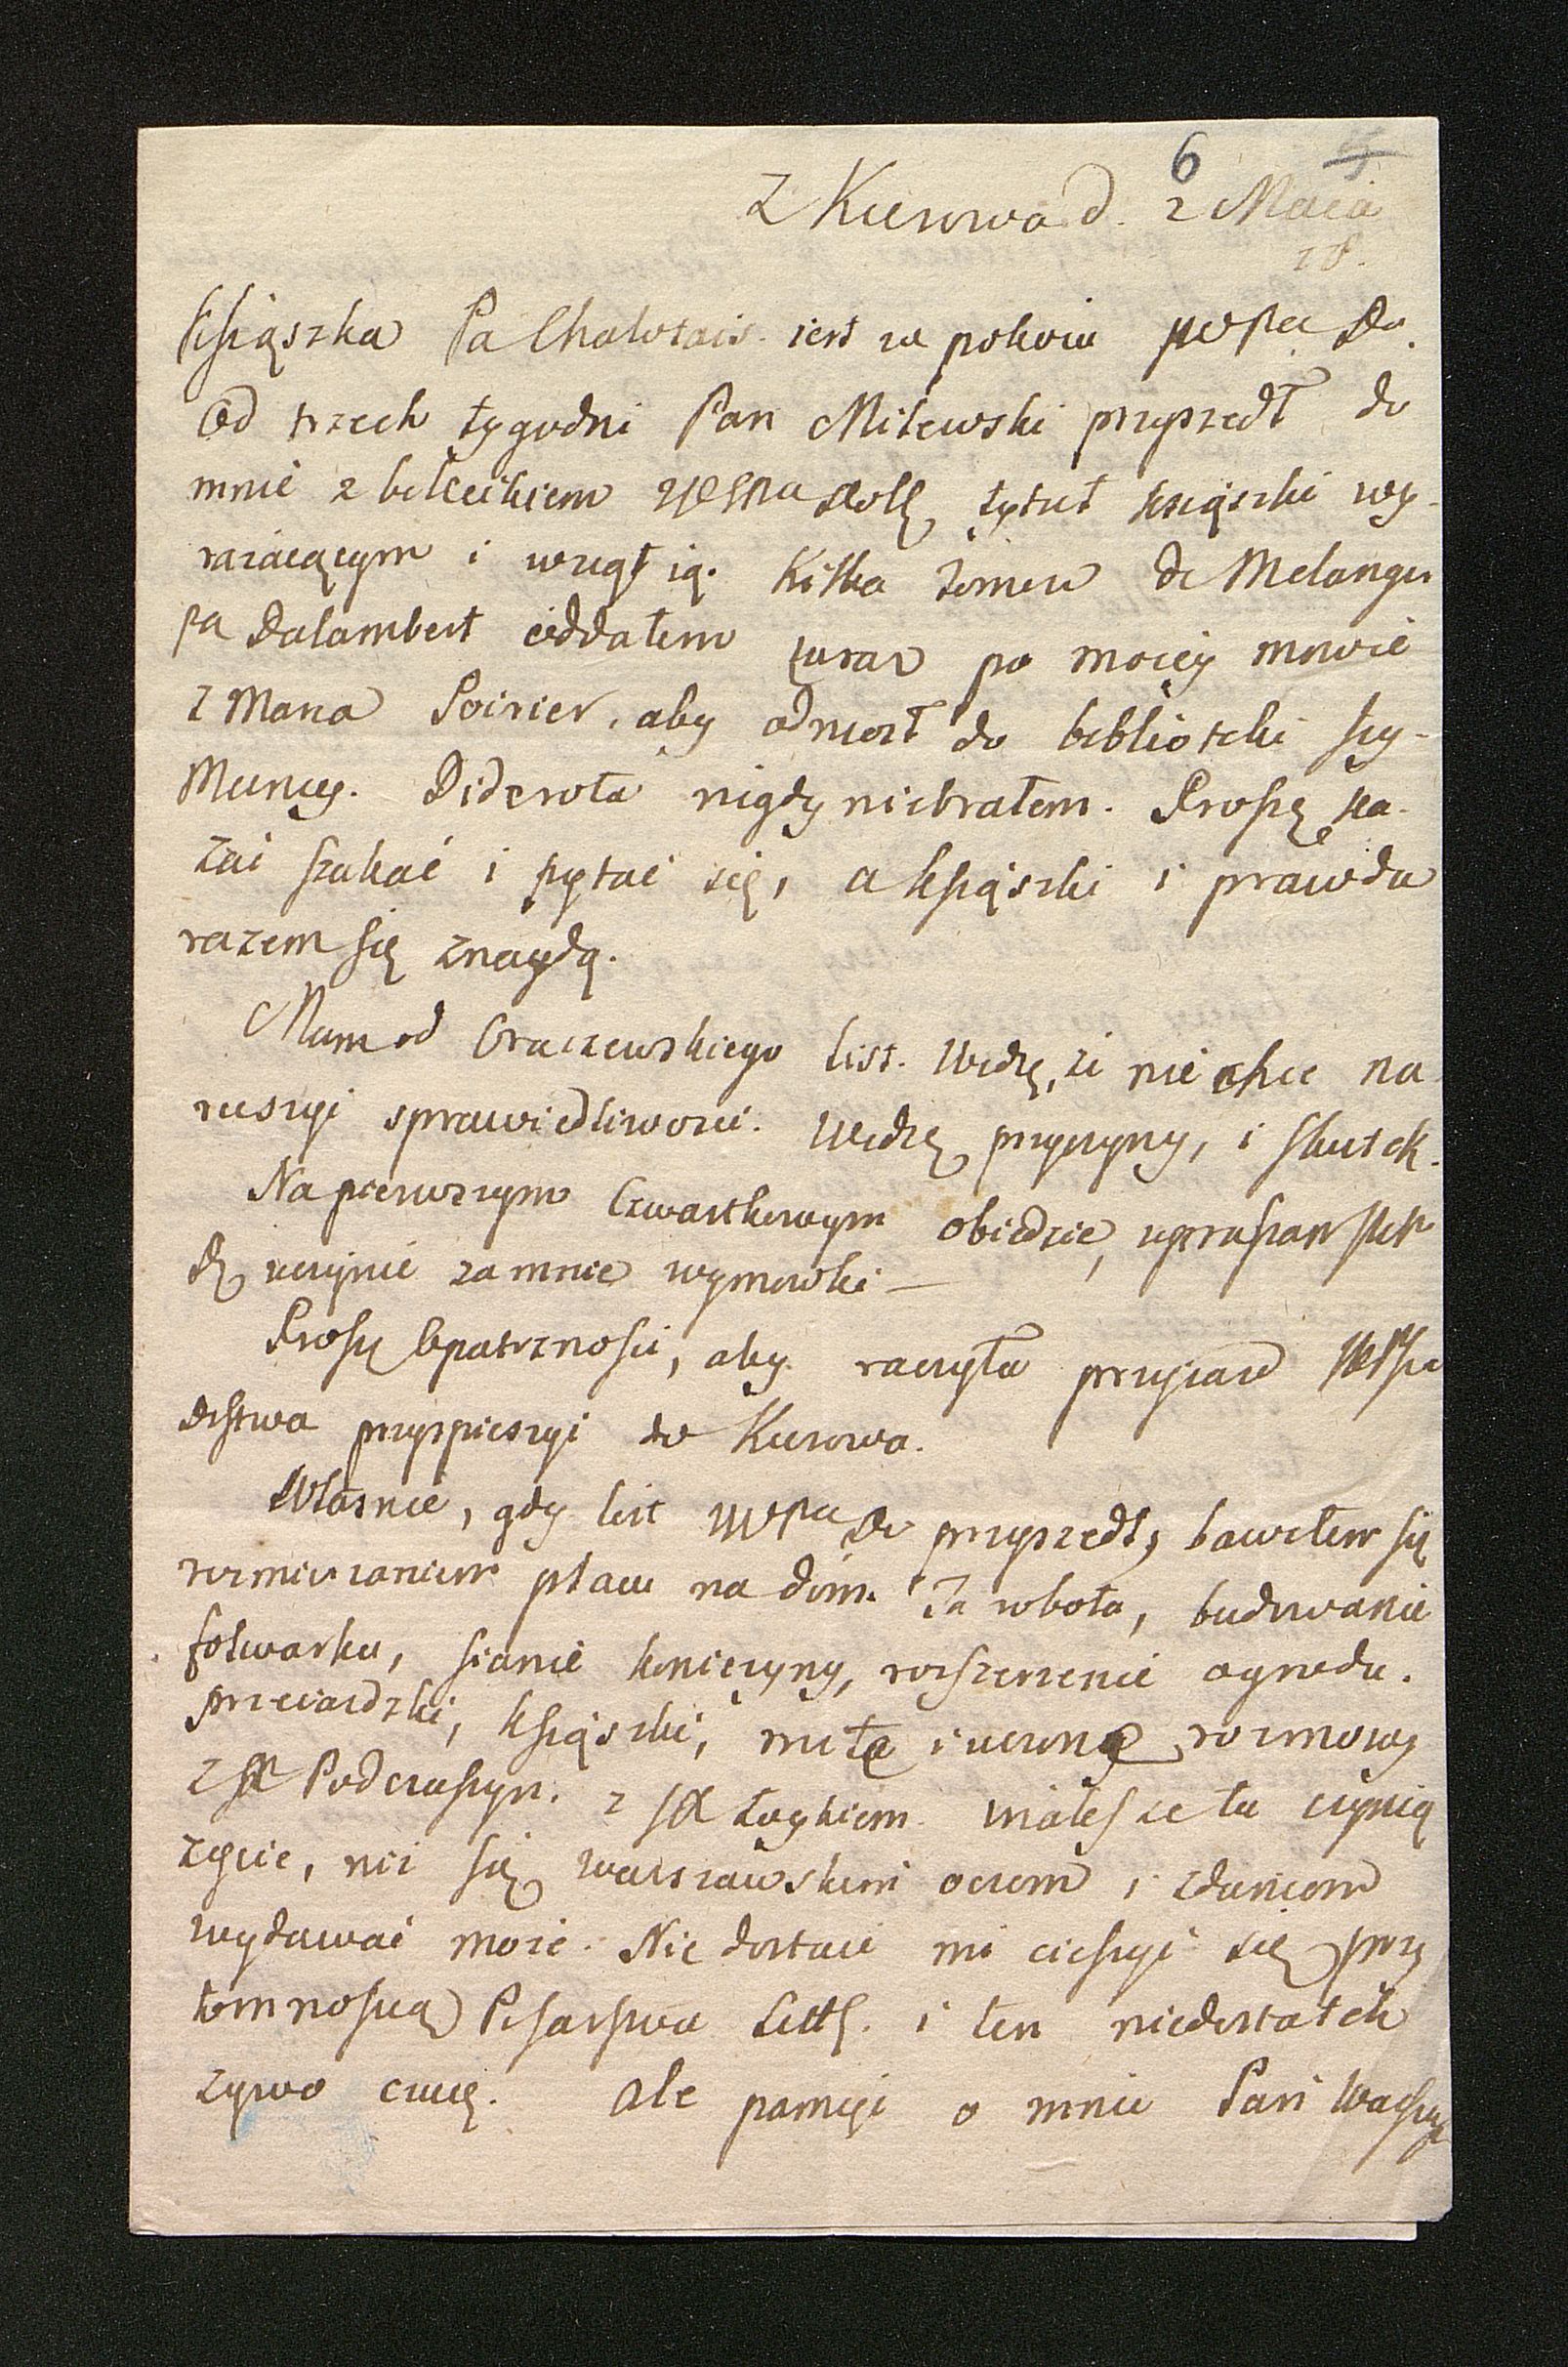 6 5
Z Kurowa d. 2 Maia
18.
Książka Pa Chalotais iest w pokoiu WPa Do.
Od trzech tygodni Pan Milewski przyszedł do
mnie z bilecikiem WPa Dob, tytuł książki wy-
rażaiącym i wziął ią. Kilka tomów de Melanges
pa Dalambert oddałem zaraz po moiey mowie
z Mana Poirier, aby odniosł do biblioteki
Diderota nigdy niebrałem. Proszę ka-
zać szukać i pytać się, a książki i prawda
razem się znaydą.
Mam od Graczewskiego list. Widzę, że nie chce na-
ruszyć sprawiedliwości. Widzę przyczyny, i skutek.
Na pierwszym Czwartkowym obiedzie, upraszam
uczynić za mnie wymowki —
Proszę Opatrzności, aby raczyła przyiazd
przyspieszyć do Kurowa.
Własnie, gdy list WPa Do przyszedł, bawiłem się
rozmierzaniem placu na dóm. Ta robota, budowanie
folwarku, sianie koniczyny, rozszerzenie ogrodu.
przeiazdzki, książki, miłe i uczone rozmowy
z Podczaszyn. z Łuykiem. milesze tu czynią
zycie, niż się warszawskim oczom i zdaniom
wydawać może. Nie dostaie mi cieszyć się przy
tomnoscią Pisarstwa Litt. i ten niedostatek
zywo czuię. Ale pamięć o mnie Pań Waszych